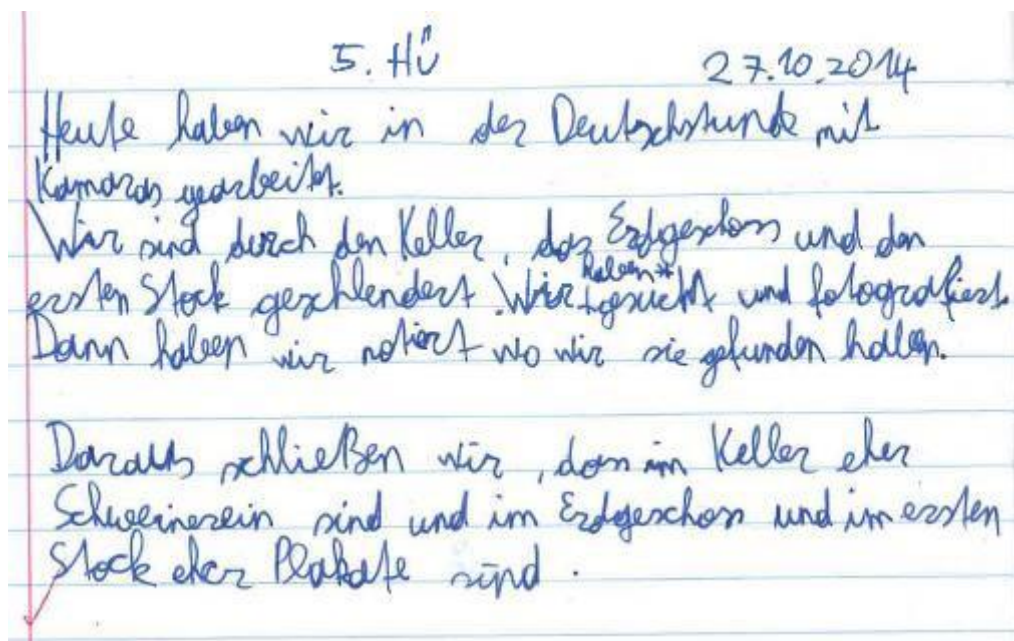 5. HÜ 27.10.2014
Heute haben wir in der Deutschstunde mit
Kamaras gearbeitet.
Wir sind durch den Keller, das Erdgeschoss und den
ersten Stock geschlendert. Wir haben* gesucht und fotografiert.
Dann haben wir notiert wo wir sie gefunden haben.
Daraus schließen wir, dass im Keller eher
sind und im Erdgeschoss und im ersten
Stock eher Plakate sind.